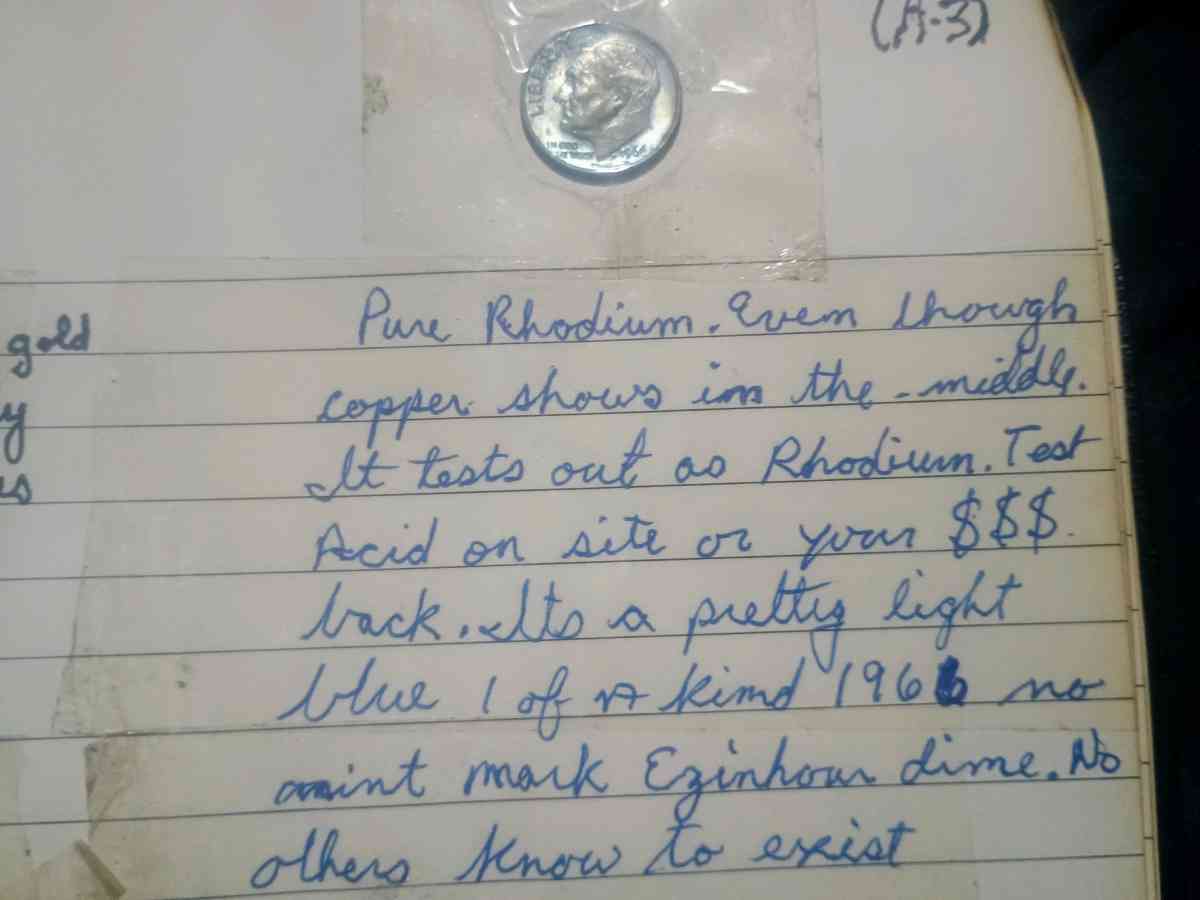 (A-3)
LIBER
IN GOD
WE TRUST
gold
Pure Rhodium. Even though
y
copper shows in the middle.
es
It tests out as Rhodium. Test
Acid on site or your $$$.
back. Its a pretty light
blue 1 of A kind 1966 no
mint mark Ezinhour dime. No
others know to exist